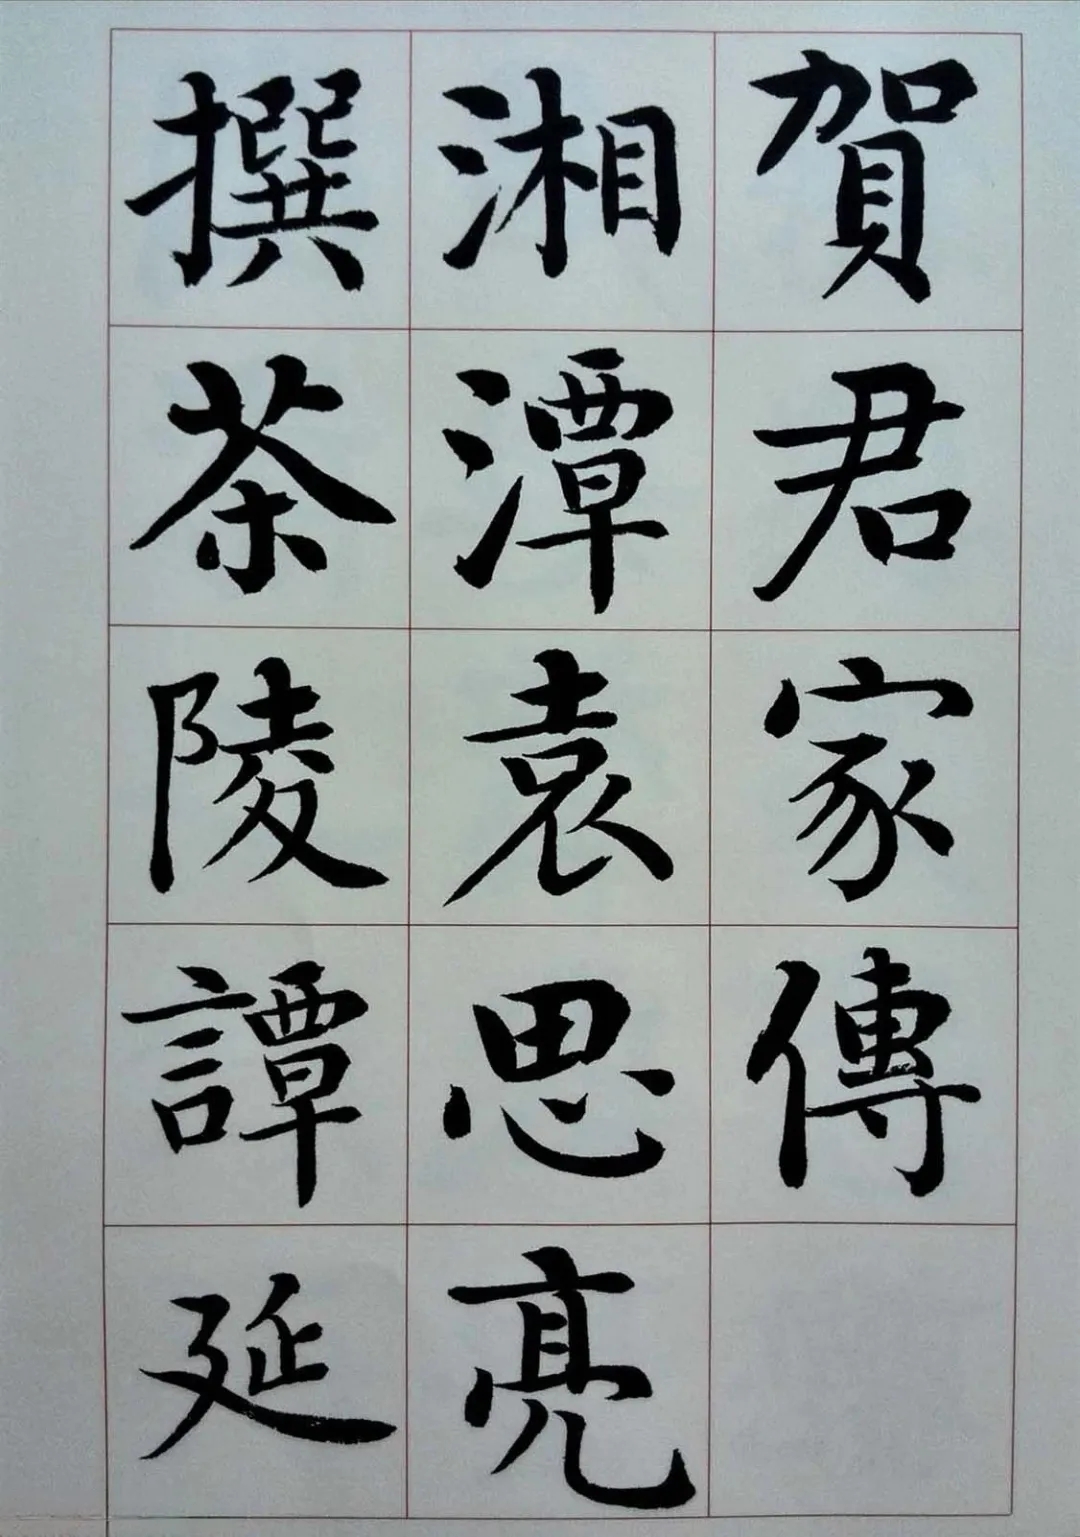 賀君家傳
湘潭袁思亮
撰茶陵譚延